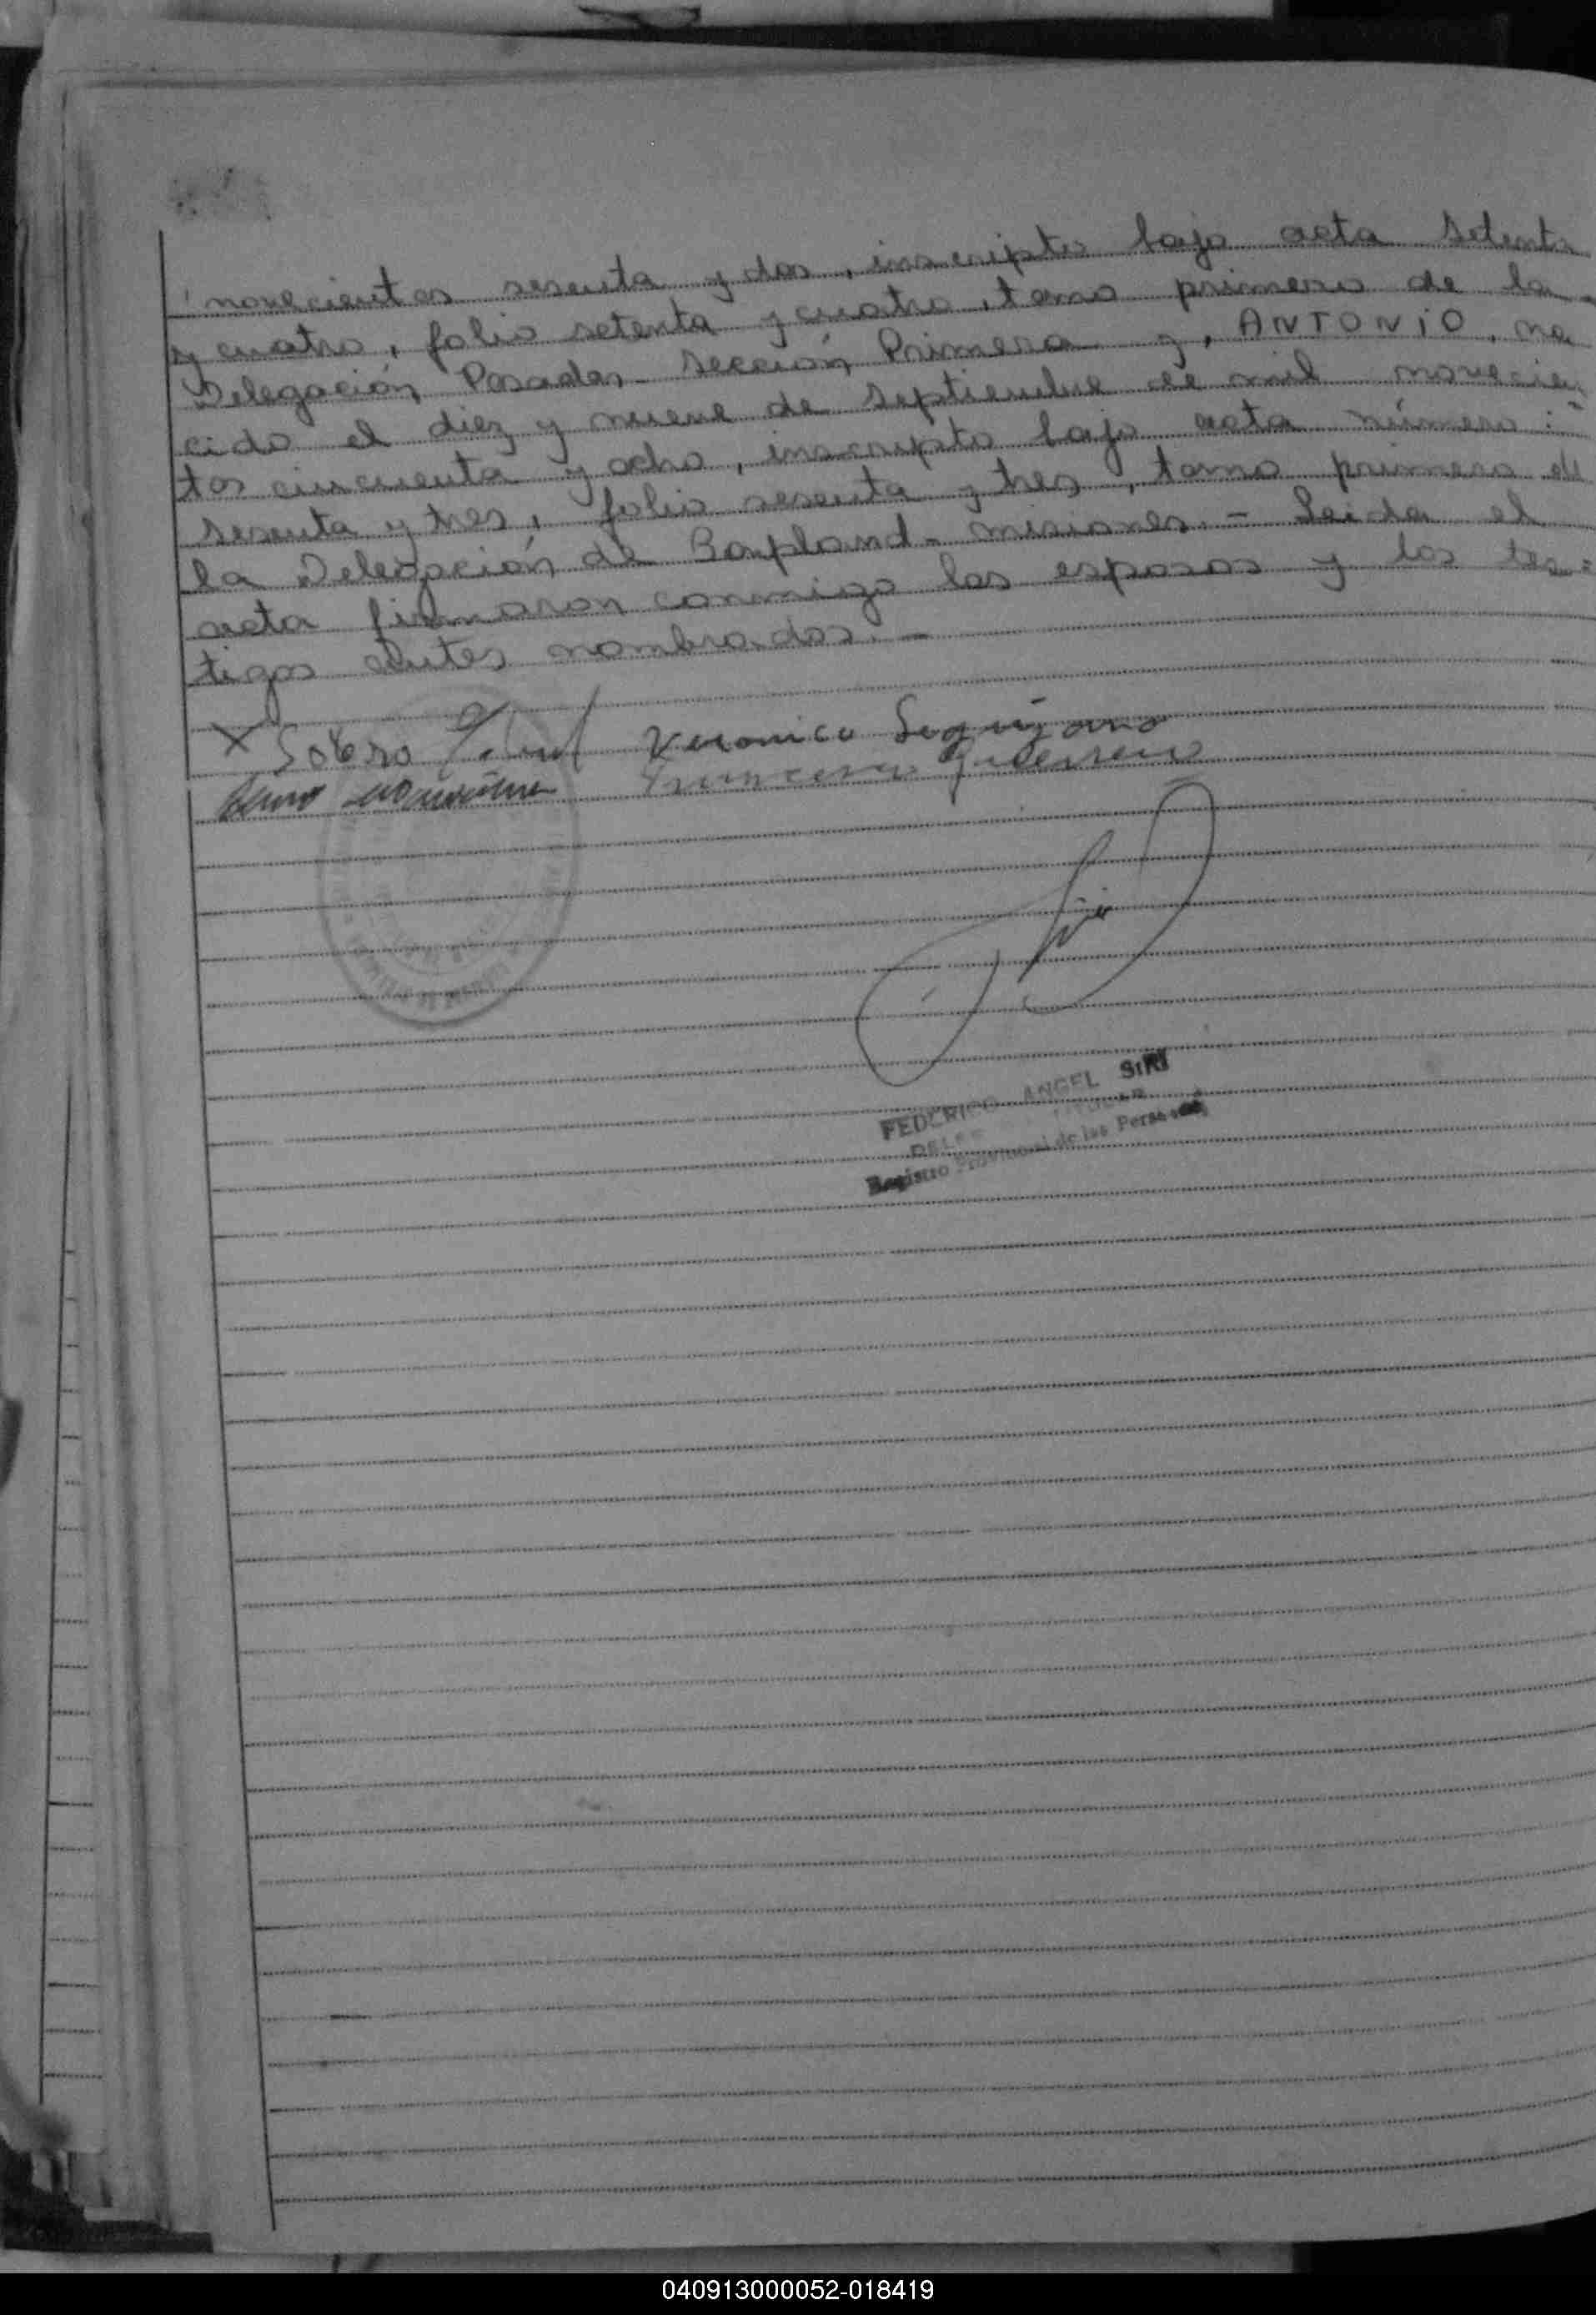 novecientos sesenta y dos, inscripto bajo acta setenta
y cuatro, folio setenta y cuatro, tomo primero de la
Delegación Posadas - Sección Primera y, ANTONIO, na
cido el diez y nueve de septiembre de mil novecien
tos cincuenta y ocho, inscripto bajo acta número:
sesenta y tres, folio sesenta y tres, tomo primero de
la Delegación de Bonpland - misiones. - Leida el
acta firmaron conmigo los esposos y los tes=
tigos antes nombrados. -
X Sotero
Veronica
Francisco Guerrero
FEDERICO ANGEL SIRI
Registro Provincial de las Personas
040913000052-018419